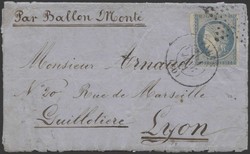 Par Ballon Monté
Monsieur Arnaud
N° 20 Rue de Marseille
Guillotière
Lyon